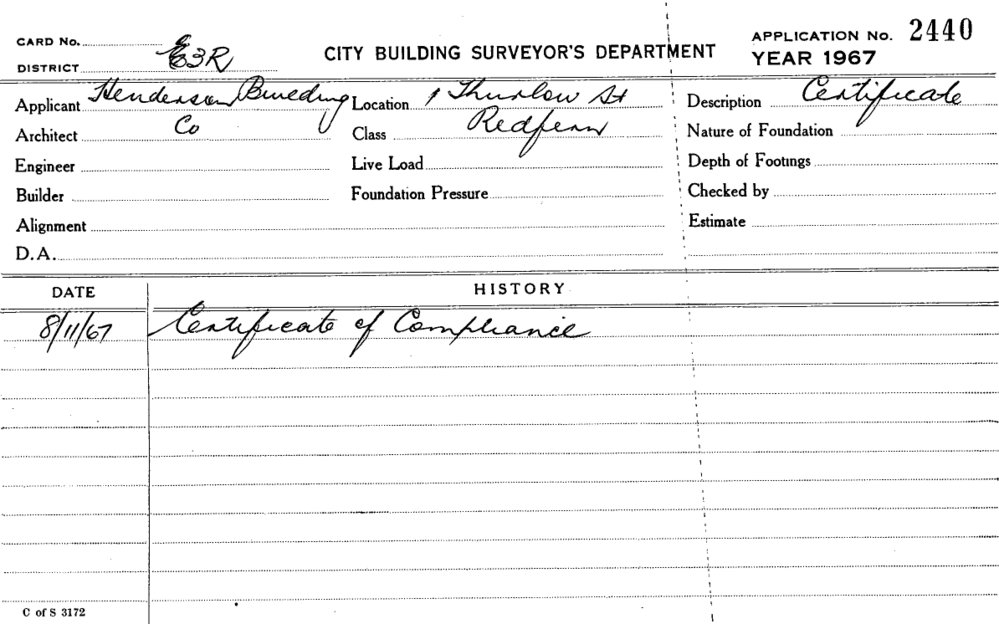 CARD No.
CITY BUILDING SURVEYOR'S DEPARTMENT
APPLICATION No. 2440
DISTRICT E3R
YEAR 1967
Applicant Henderson Building Location 1 Thurlow St Description Certificate
Architect Co Class Redfern Nature of Foundation
Engineer Live Load Depth of Footings
Builder Foundation Pressure Checked by
Alignment Estimate
D.A.
DATE HISTORY
8/11/67 Certificate of Compliance
C of S 3172